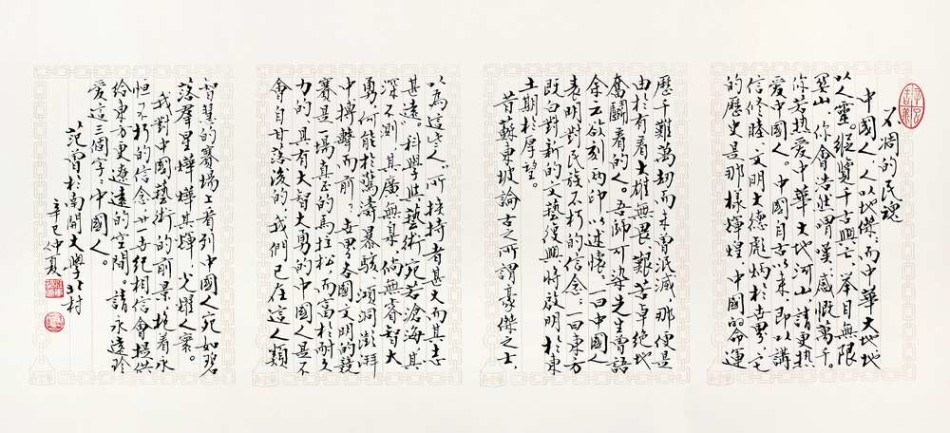 不凋的民魂
中國人人以地傑，而中華大地地
以人靈。縱覽千古興亡，举目無限
江山，你會浩然喟嘆，感慨萬千。
你若热爱中華大地河山，請更热
爱中國人。中國自古以来，即以講
信修睦、文明大德彪炳於世界。它
的歷史是那樣輝煌，中國的命運
歷千難萬劫而未曾泯滅，那便是
由於有着大雄無畏、艱苦卓绝地
奮鬭着的人。吾師可染先生嘗語
余云欲刻兩印，以述懷，一曰中國人
表明對民族不朽的信念；一曰東方
既白，對新的文藝復興將啟明於東
土期於厚望。
昔蘇東坡論古之所謂豪傑之士，
以為這些人，所挾持者甚大而其志
甚遠，科學與藝術宛若滄海，其
深不測，其廣無垠，倘無睿智大
勇，何能於驚濤暴駭、澒洞澎湃
中搏擊而前；世界各國文明的競
賽是一場真正的馬拉松，而富於耐久
力的具有大智大勇的中國人是不
會自甘落後的，我們已在這人類
智慧的賽場上看到中國人宛如碧
落群星，燁燁其輝，光耀人寰。
我對中國藝術的前景，抱着永
恒不朽的信念，廿一世紀相信會提供
给東方更遼遠的空間。請永遠珍
爱這三個字：中國人。
范曾於南開大學北村
辛巳仲夏